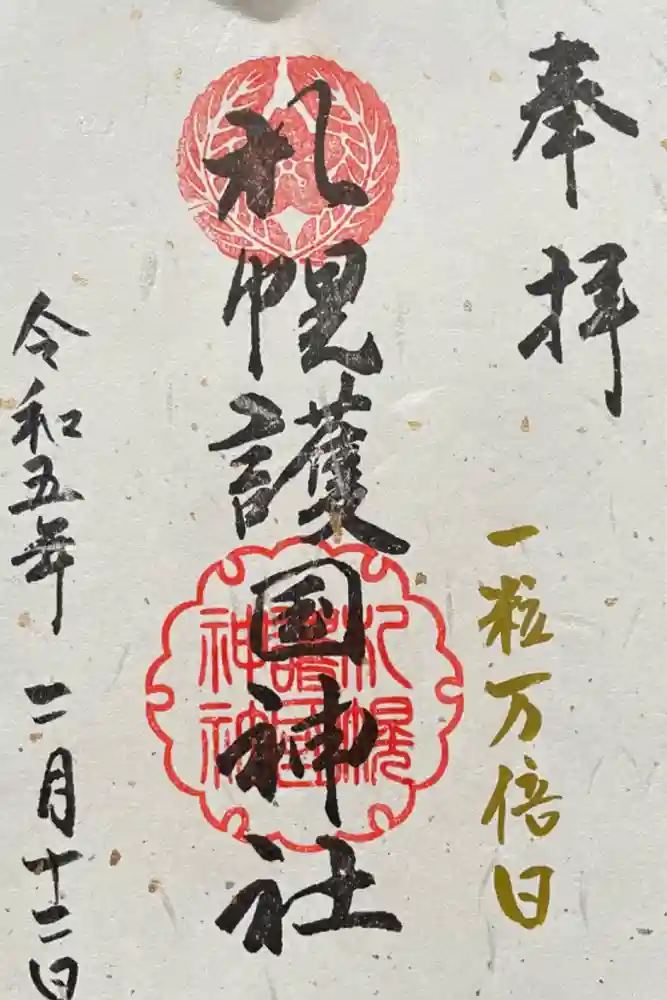 奉拝
一粒万倍日
札幌護国神社
札幌
護国
神社
令和五年二月十二日